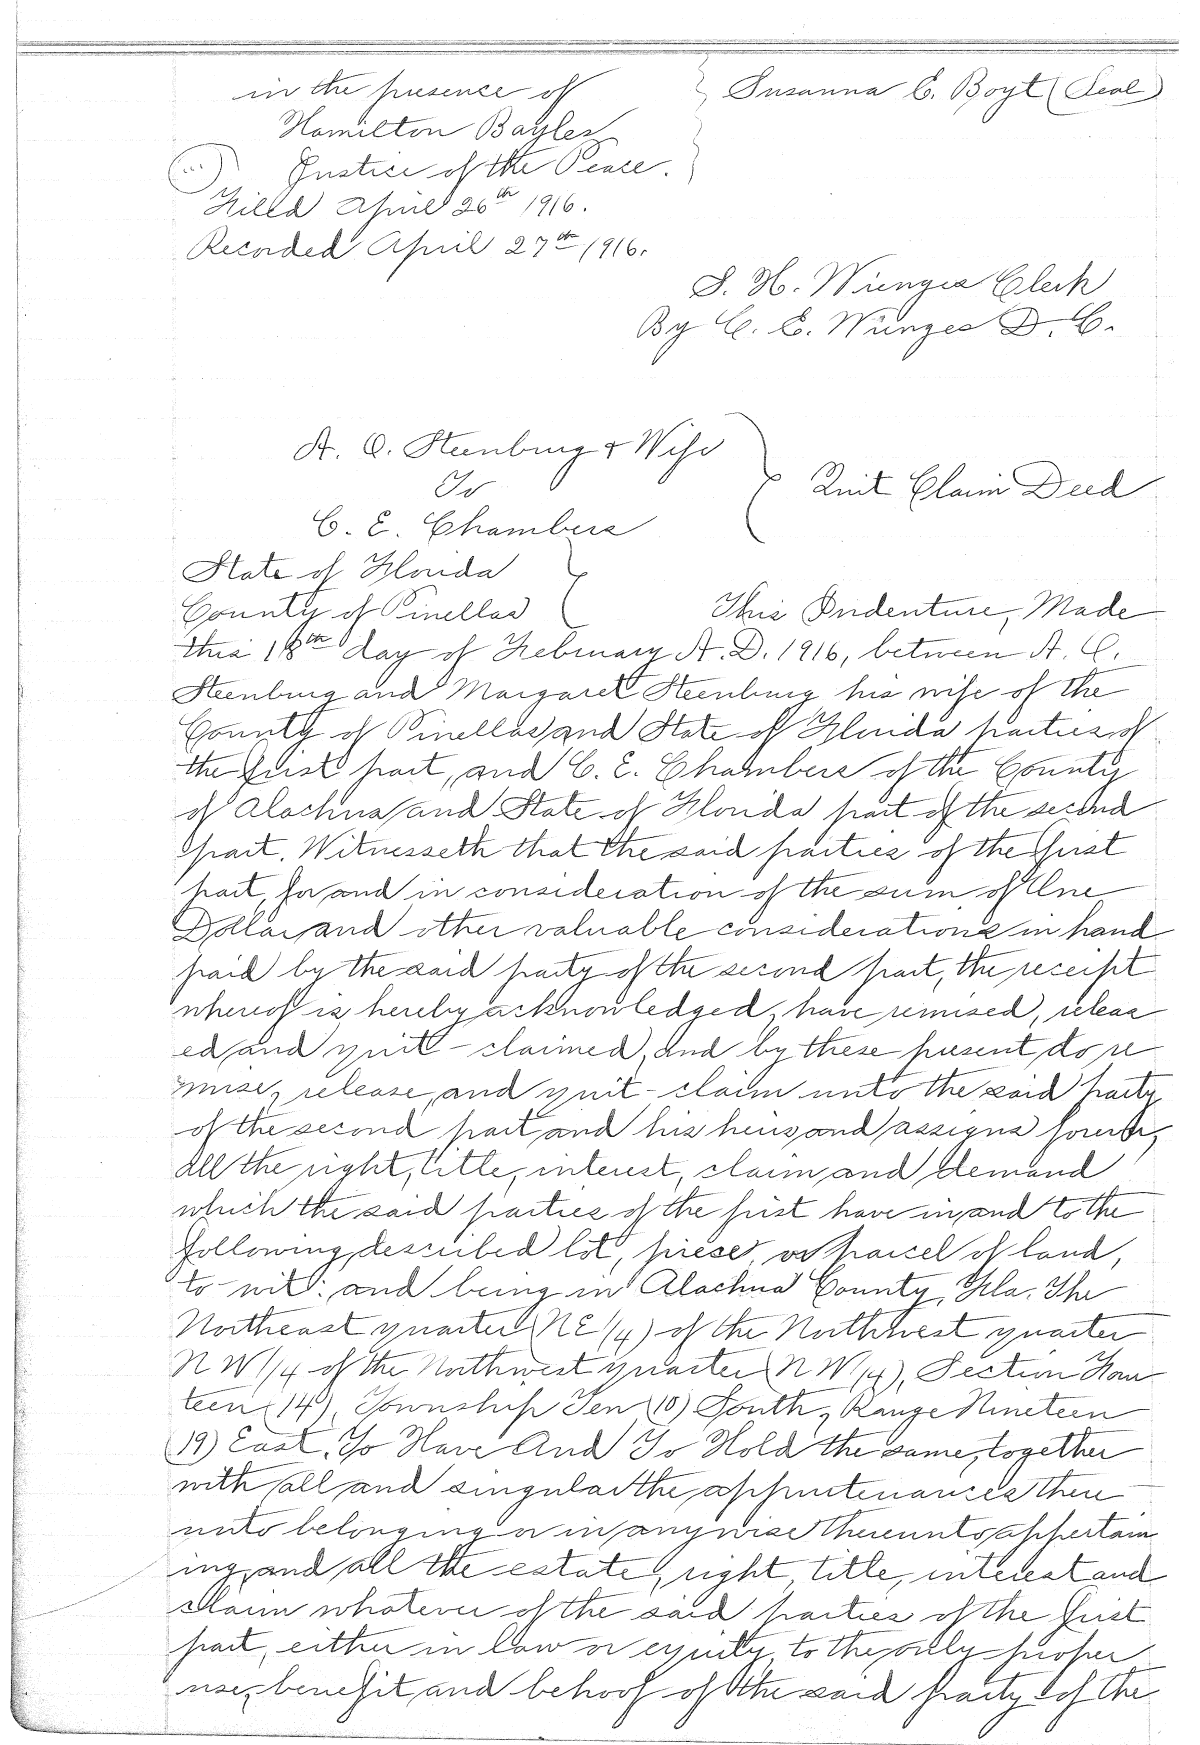 in the presence of } Susanna E. Boyt (Seal)
Hamilton Bayles
Justice of the Peace.
Filed April 26th 1916.
Recorded April 27th 1916.
S. H. Wienges Clerk
By C. E. Wienges D. C.
A. C. Steenburg & Wife
To
C. E. Chambers
Quit Claim Deed
State of Florida
County of Pinellas } This Indenture, Made
this 18th day of February A. D. 1916, between A. C.
Steenburg and Margaret Steenburg his wife of the
County of Pinellas and State of Florida parties of
the first part, and C. E. Chambers of the County
of Alachua and State of Florida part of the second
part. Witnesseth that the said parties of the first
part, for and in consideration of the sum of One
Dollar and other valuable considerations in hand
paid by the said party of the second part, the receipt
whereof is hereby acknowledged, have remised, releas
ed and quit-claimed, and by these present do re
mise, release, and quit-claim unto the said party
of the second part and his heirs and assigns forever,
all the right, title, interest, claim and demand
which the said parties of the first have in and to the
following described lot, piese, or parcel of land,
to-wit: and being in Alachua County, Fla. The
Northeast quarter (NE 1/4) of the Northwest quarter
NW 1/4 of the Northwest quarter (NW 1/4), Section Four
teen (14), Township Ten (10) South, Range Nineteen
(19) East. To Have And To Hold the same, together
with all and singular the appurtenances there
unto belonging or in anywise thereunto appertain
ing, and all the estate, right, title, interest and
claim whatever of the said parties of the first
part, either in law or equity, to the only proper
use, benefit and behoof of the said party of the